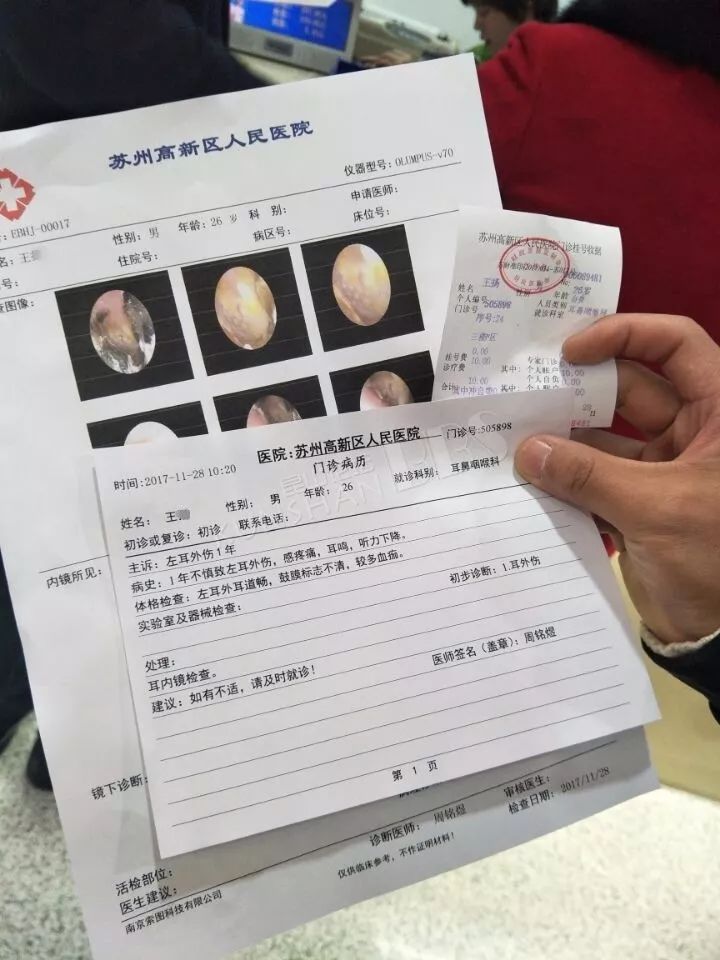 苏州高新区人民医院
仪器型号: OLUMPUS-v70
EBHJ-00017
性别: 男 年龄: 26 岁 科 别: 申请医师:
名: 王
住院号: 病区号: 床位号:
号:
查图像:
苏州高新区人民医院门诊挂号收据
姓名 王扬
年龄 26岁
个人编号
505898
人员类别 自费
门诊号
就诊科室
序号:24
三楼F区
挂号费 0.00
诊疗费 10.00
其中: 个人帐户
个人自负
合计
医院: 苏州高新区人民医院 门诊号: 505898
时间: 2017-11-28 10:20 门诊病历
就诊科别: 耳鼻咽喉科
姓名: 王 性别: 男 年龄: 26
初诊或复诊: 初诊 联系电话:
主诉: 左耳外伤1年
病史: 1年不慎致左耳外伤, 感疼痛, 耳鸣, 听力下降。
体格检查: 左耳外耳道畅, 鼓膜标志不清, 较多血痂。
实验室及器械检查: 初步诊断: 1.耳外伤
处理:
耳内镜检查。
建议: 如有不适, 请及时就诊!
医师签名 (盖章): 周铭煜
第 1 页
内镜所见:
镜下诊断:
诊断医师: 周铭煜 审核医生:
检查日期: 2017/11/28
活检部位:
医生建议:
仅供临床参考, 不作证明材料!
南京索图科技有限公司